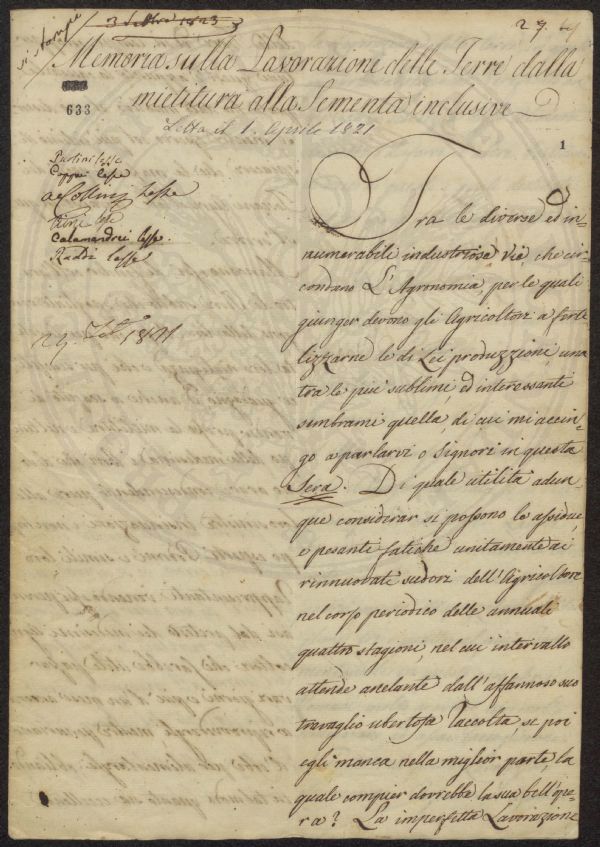 si stampi
3 Settre 1823
29.
Memoria sulla Lavorazione delle Terre dalla
mietitura alla Sementa inclusive
633
Letta il 1. Aprile 1821
1
Coppi lesse
lesse
Calamandrei lesse.
Raddi lesse
Tra le diverse ed in-
numerabili industriose vie, che cir-
condano L'Agronomia, per le quali
giunger devono gli Agricoltori a ferti
lizzarne le di Lei produzzioni, una
tra le piu' sublimi, ed interessanti
sembrami quella, di cui mi accin-
go a parlarvi o Signori in questa
Sera. Di quale utilità adun-
que considerar si possono le assidue,
e pesanti fatiche unitamente ai
rinnuovati sudori dell'Agricoltore
nel corso periodico delle annuale
quattro stagioni, nel cui intervallo
attende anelante dall'affannoso suo
travaglio ubertosa Raccolta, se poi
egli manca nella miglior parte, la
quale compier dovrebbe la sua bell'ope-
ra? La imperfetta Lavorazione